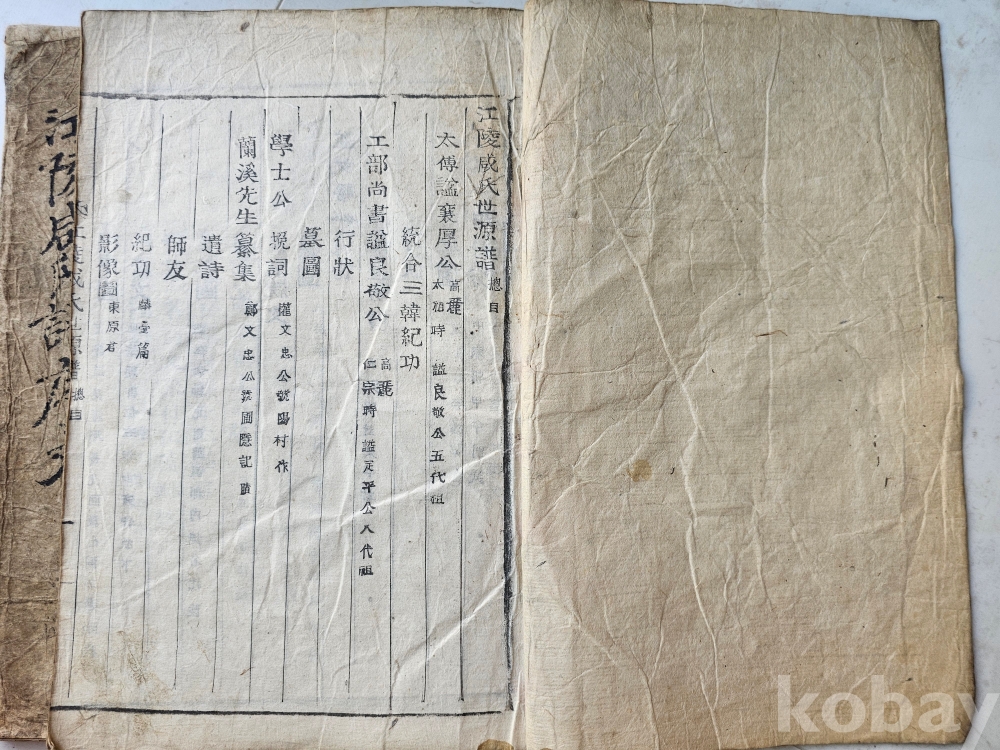 江陵咸氏世源譜 總目
太傅諡襄厚公 高麗太祖時 諡良敬公五代祖
統合三韓紀功
工部尚書諡良敬公 高麗仁宗時 諡定平公八代祖
行狀
墓圖
學士公 挽詞 權文忠公號陽村作
蘭溪先生纂集 鄭文忠公號圃隱記蹟
遺詩
師友
紀功 華壺篇
影像圖 東原君
江陵咸氏世源譜 總目
江陵咸氏
kobay